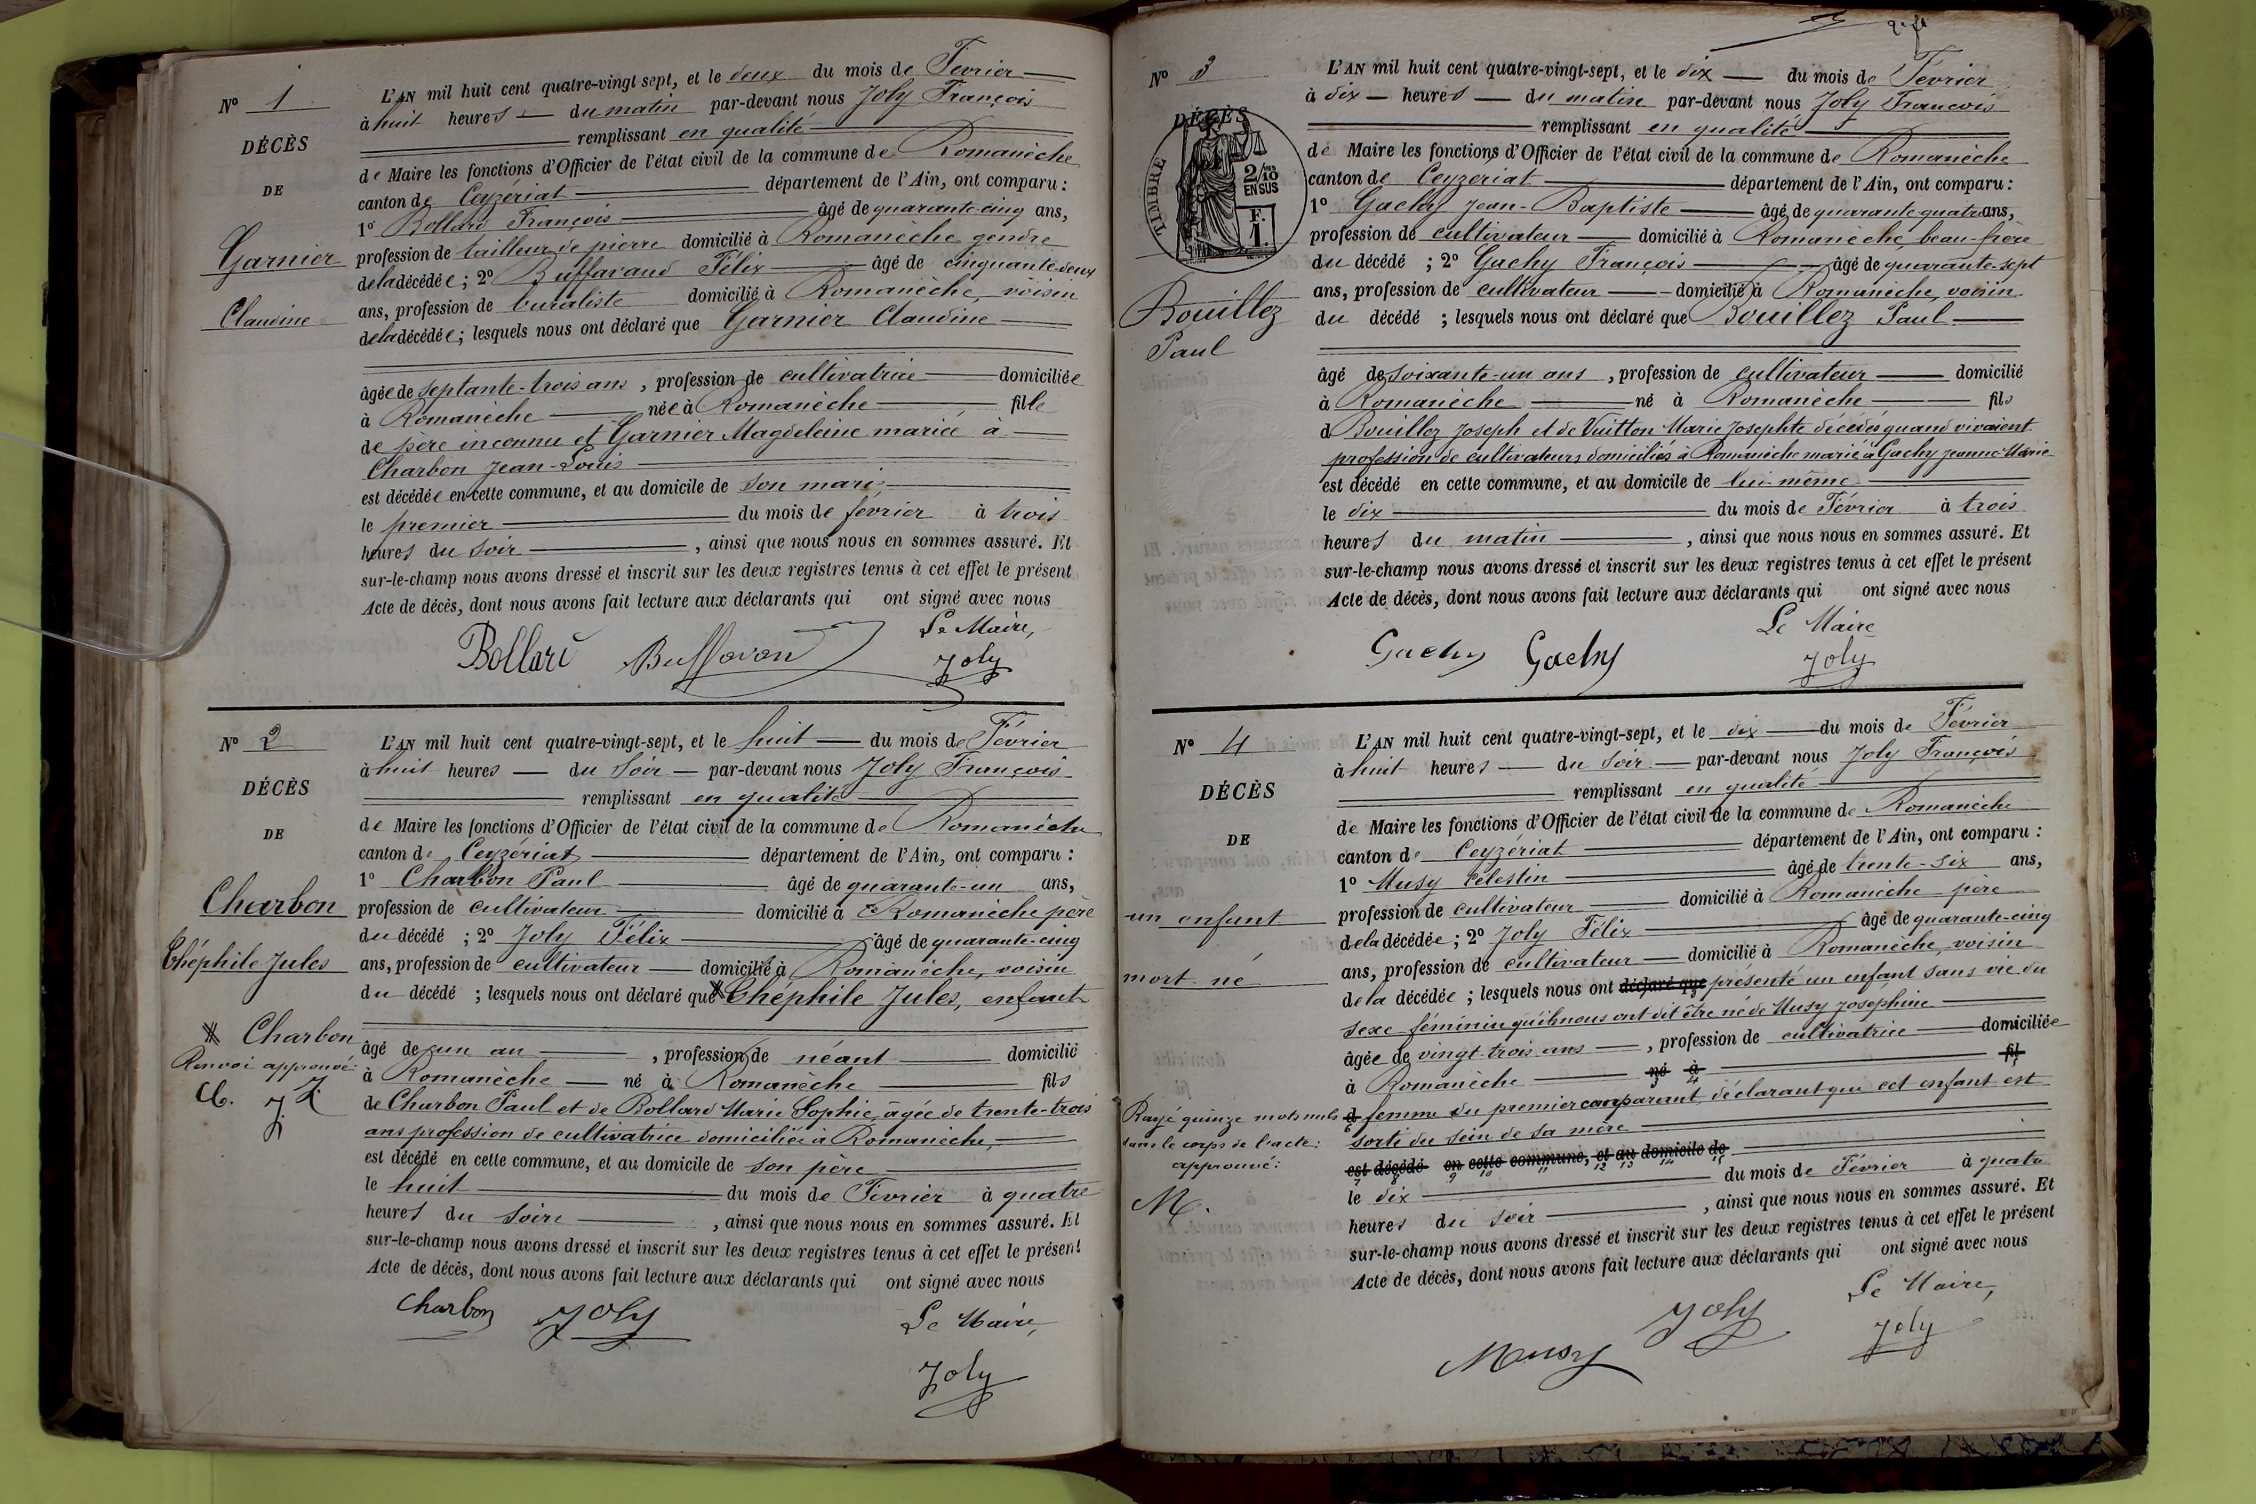 N° 1
DÉCÈS
DE
Garnier
Claudine
L'AN mil huit cent quatre-vingt sept, et le deux du mois de Février
à huit heures du matin par-devant nous Joly François
remplissant en qualité
de Maire les fonctions d'Officier de l'état civil de la commune de Romanèche
canton de Ceyzériat département de l'Ain, ont comparu :
1° Bollard François âgé de quarante-cinq ans,
profession de tailleur de pierre domicilié à Romanèche gendre
de la décédée ; 2° Buffavand Félix âgé de cinquante-deux
ans, profession de buraliste domicilié à Romanèche, voisin
de la décédée ; lesquels nous ont déclaré que Garnier Claudine
âgée de septante-trois ans, profession de cultivatrice domiciliée
à Romanèche née à Romanèche fille
de père inconnu et Garnier Magdeleine mariée à
Charbon Jean-Louis
est décédée en cette commune, et au domicile de son mari,
le premier du mois de février à trois
heures du soir, ainsi que nous nous en sommes assuré. Et
sur-le-champ nous avons dressé et inscrit sur les deux registres tenus à cet effet le présent
Acte de décès, dont nous avons fait lecture aux déclarants qui ont signé avec nous
Le Maire,
Bollard Buffavand Joly
N° 2
DÉCÈS
DE
Charbon
Théphile Jules
Charbon
Renvoi approuvé :
L'AN mil huit cent quatre-vingt-sept, et le huit du mois de Février
à huit heures du soir par-devant nous Joly François
remplissant en qualité
de Maire les fonctions d'Officier de l'état civil de la commune de Romanèche
canton de Ceyzériat département de l'Ain, ont comparu :
1° Charbon Paul âgé de quarante-un ans,
profession de cultivateur domicilié à Romanèche père
du décédé ; 2° Joly Félix âgé de quarante-cinq
ans, profession de cultivateur domicilié à Romanèche, voisin
du décédé ; lesquels nous ont déclaré que Théphile Jules, enfant
âgé de un an, profession de néant domicilié
à Romanèche né à Romanèche fils
de Charbon Paul et de Bollard Marie Sophie, âgée de trente-trois
ans profession de cultivatrice domiciliée à Romanèche,
est décédé en cette commune, et au domicile de son père
le huit du mois de Février à quatre
heures du soire, ainsi que nous nous en sommes assuré. Et
sur-le-champ nous avons dressé et inscrit sur les deux registres tenus à cet effet le présent
Acte de décès, dont nous avons fait lecture aux déclarants qui ont signé avec nous
Charbon Joly Le Maire,
Joly
N° 3
DÉCÈS
TIMBRE
2/10
EN SUS
F.
1.
Bouillez
Paul
L'AN mil huit cent quatre-vingt-sept, et le dix du mois de Février
à dix heures du matin par-devant nous Joly François
remplissant en qualité
de Maire les fonctions d'Officier de l'état civil de la commune de Romanèche
canton de Ceyzériat département de l'Ain, ont comparu :
1° Gachy Jean-Baptiste âgé de quarante quatre ans,
profession de cultivateur domicilié à Romanèche, beau-frère
du décédé ; 2° Gachy François âgé de quarante-sept
ans, profession de cultivateur domicilié à Romanèche, voisin
du décédé ; lesquels nous ont déclaré que Bouillez Paul
âgé de soixante-un ans, profession de cultivateur domicilié
à Romanèche né à Romanèche fils
d Bouillez Joseph et de Vuitton Marie Josephte décédés quand vivaient
profession de cultivateurs domiciliés à Romanèche marié à Gachy Jeanne-Marie
est décédé en cette commune, et au domicile de lui-même
le dix du mois de Février à trois
heures du matin, ainsi que nous nous en sommes assuré. Et
sur-le-champ nous avons dressé et inscrit sur les deux registres tenus à cet effet le présent
Acte de décès, dont nous avons fait lecture aux déclarants qui ont signé avec nous
Le Maire
Gachy Gachy Joly
N° 4
DÉCÈS
DE
un enfant
mort né
Rayé quinze mots nuls
dans le corps de l'acte :
approuvé :
M.
L'AN mil huit cent quatre-vingt-sept, et le dix du mois de Février
à huit heures du soir par-devant nous Joly François
remplissant en qualité
de Maire les fonctions d'Officier de l'état civil de la commune de Romanèche
canton de Ceyzériat département de l'Ain, ont comparu :
1° Musy Célestin âgé de trente-six ans,
profession de cultivateur domicilié à Romanèche père
de la décédée ; 2° Joly Félix âgé de quarante-cinq
ans, profession de cultivateur domicilié à Romanèche, voisin
de la décédée ; lesquels nous ont déclaré que présenté un enfant sans vie du
sexe féminin qu'ils nous ont dit être né de Musy Josephine
âgée de vingt-trois ans, profession de cultivatrice domiciliée
à Romanèche né à fil
d femme du premier comparant, déclarant que cet enfant est
sorti du sein de sa mère
est décédé en cette commune, et au domicile de
le dix du mois de Février à quatre
heures du soir, ainsi que nous nous en sommes assuré. Et
sur-le-champ nous avons dressé et inscrit sur les deux registres tenus à cet effet le présent
Acte de décès, dont nous avons fait lecture aux déclarants qui ont signé avec nous
Le Maire,
Musy Joly Joly